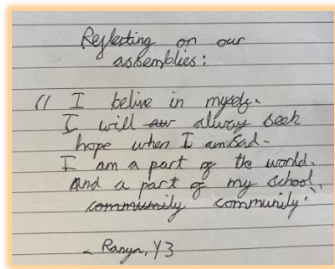 Reflecting on our
assemblies:
" I belive in myself.
I will aw alway seek
hope when I am sad.
I am a part of the world.
And a part of my school.
community community."
- Ranya, Y3